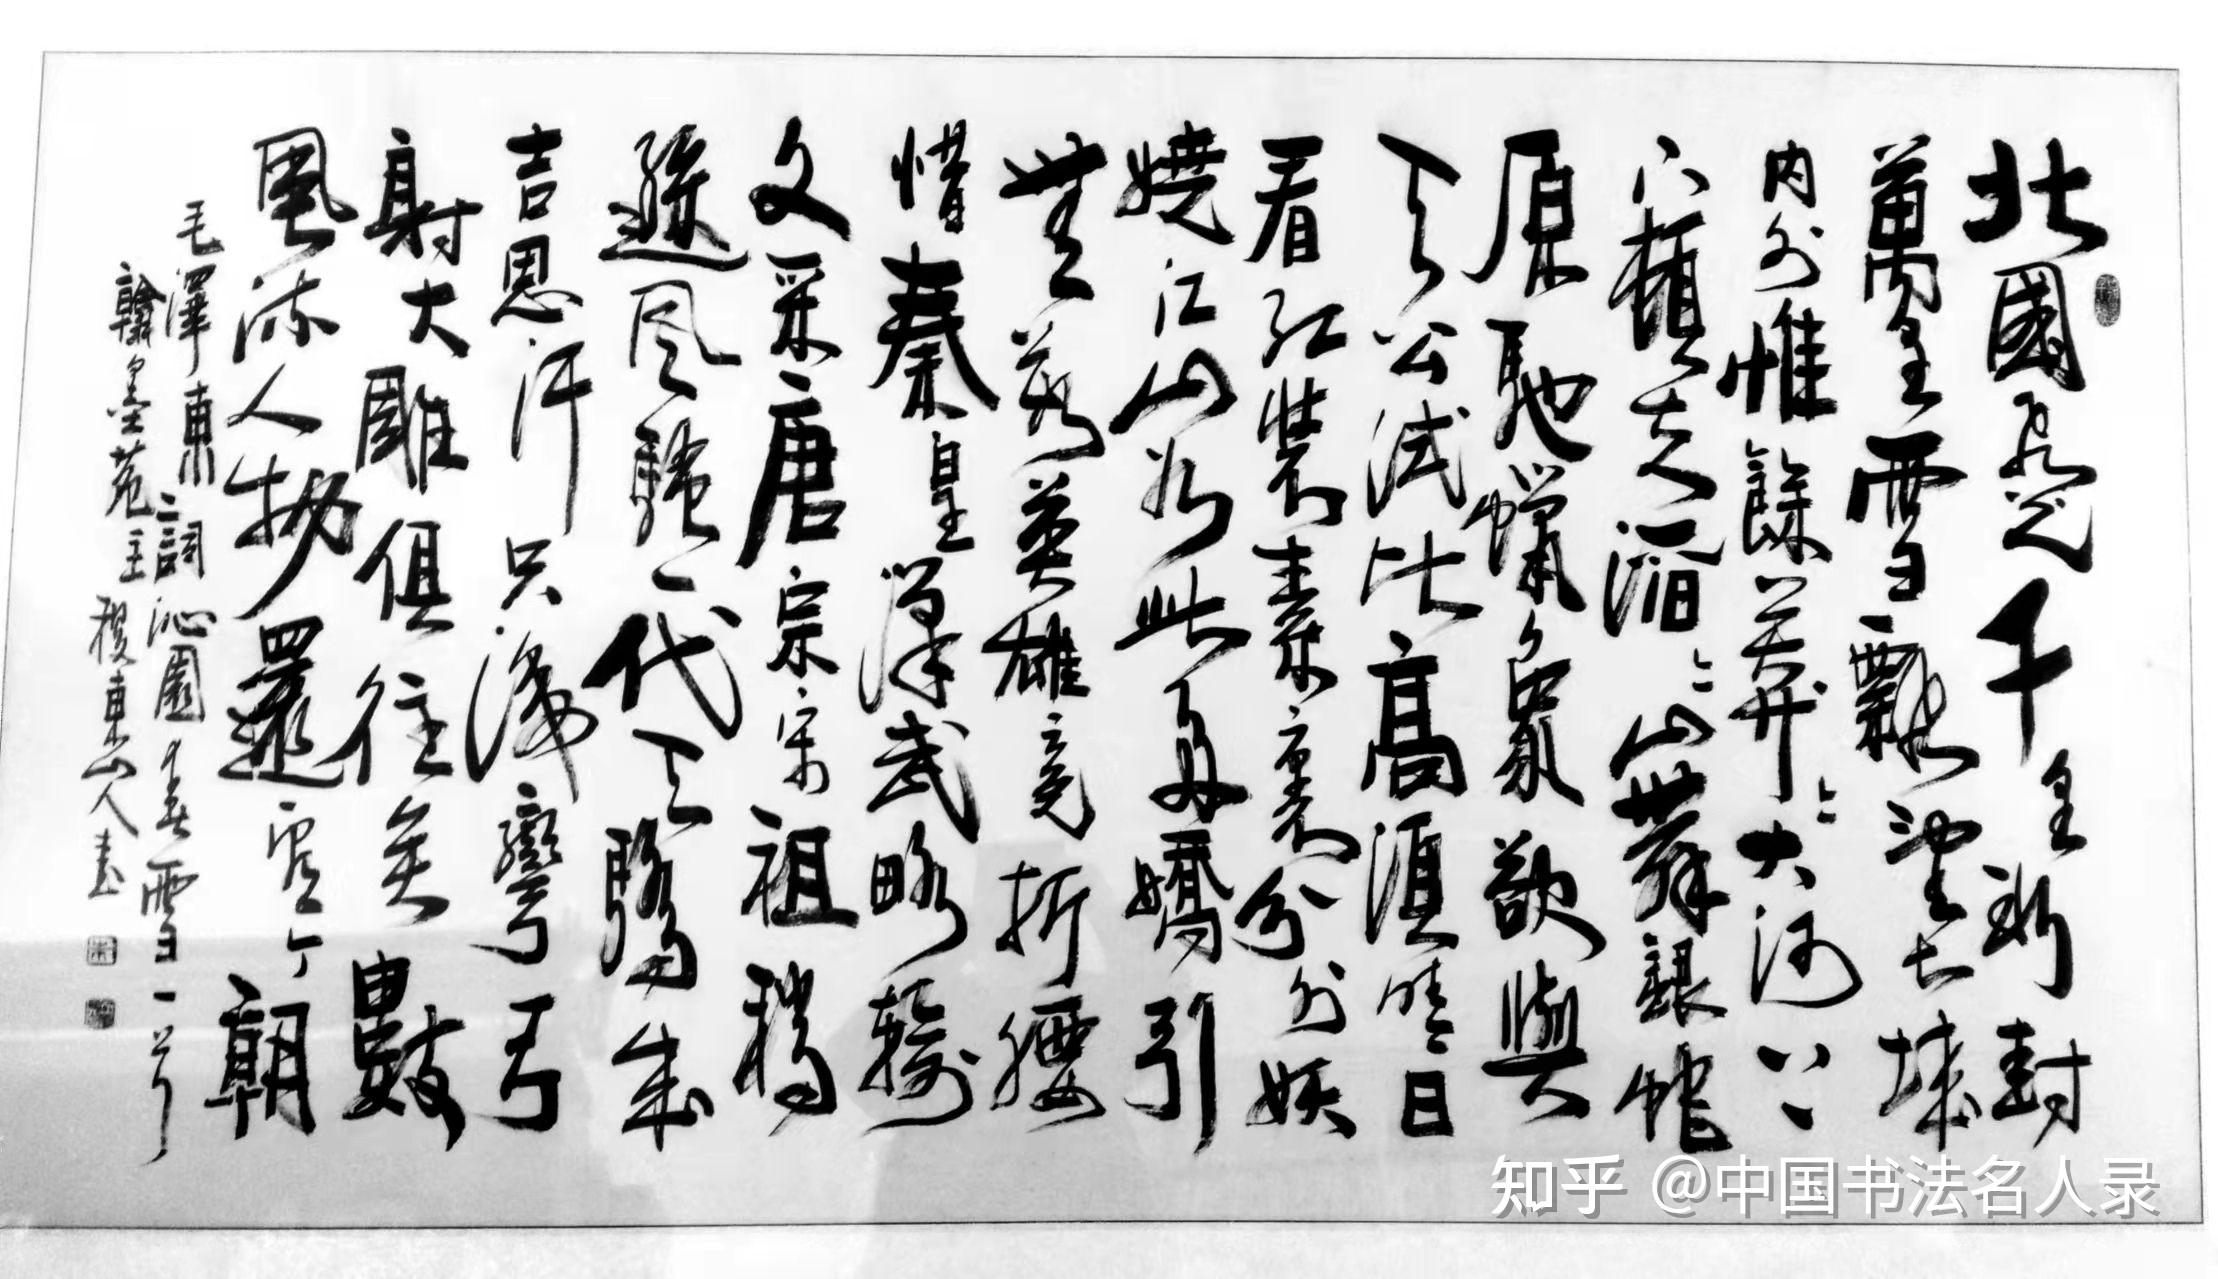 北國風光千里冰封
萬里雪飄望長城
内外惟餘莽〻大河上
下頓失滔〻山舞銀蛇
原馳蠟象欲與
天公試比高須晴日
看紅裝素裹分外妖
嬈江山如此多嬌引
無數英雄競折腰
惜秦皇漢武略輸
文采唐宗宋祖稍
遜風騷一代天驕成
吉思汗只識彎弓
射大雕俱往矣數
風流人物還看今朝
毛澤東詞沁園春雪一首
翰墨苑主稷東山人書
知乎 @中国书法名人录